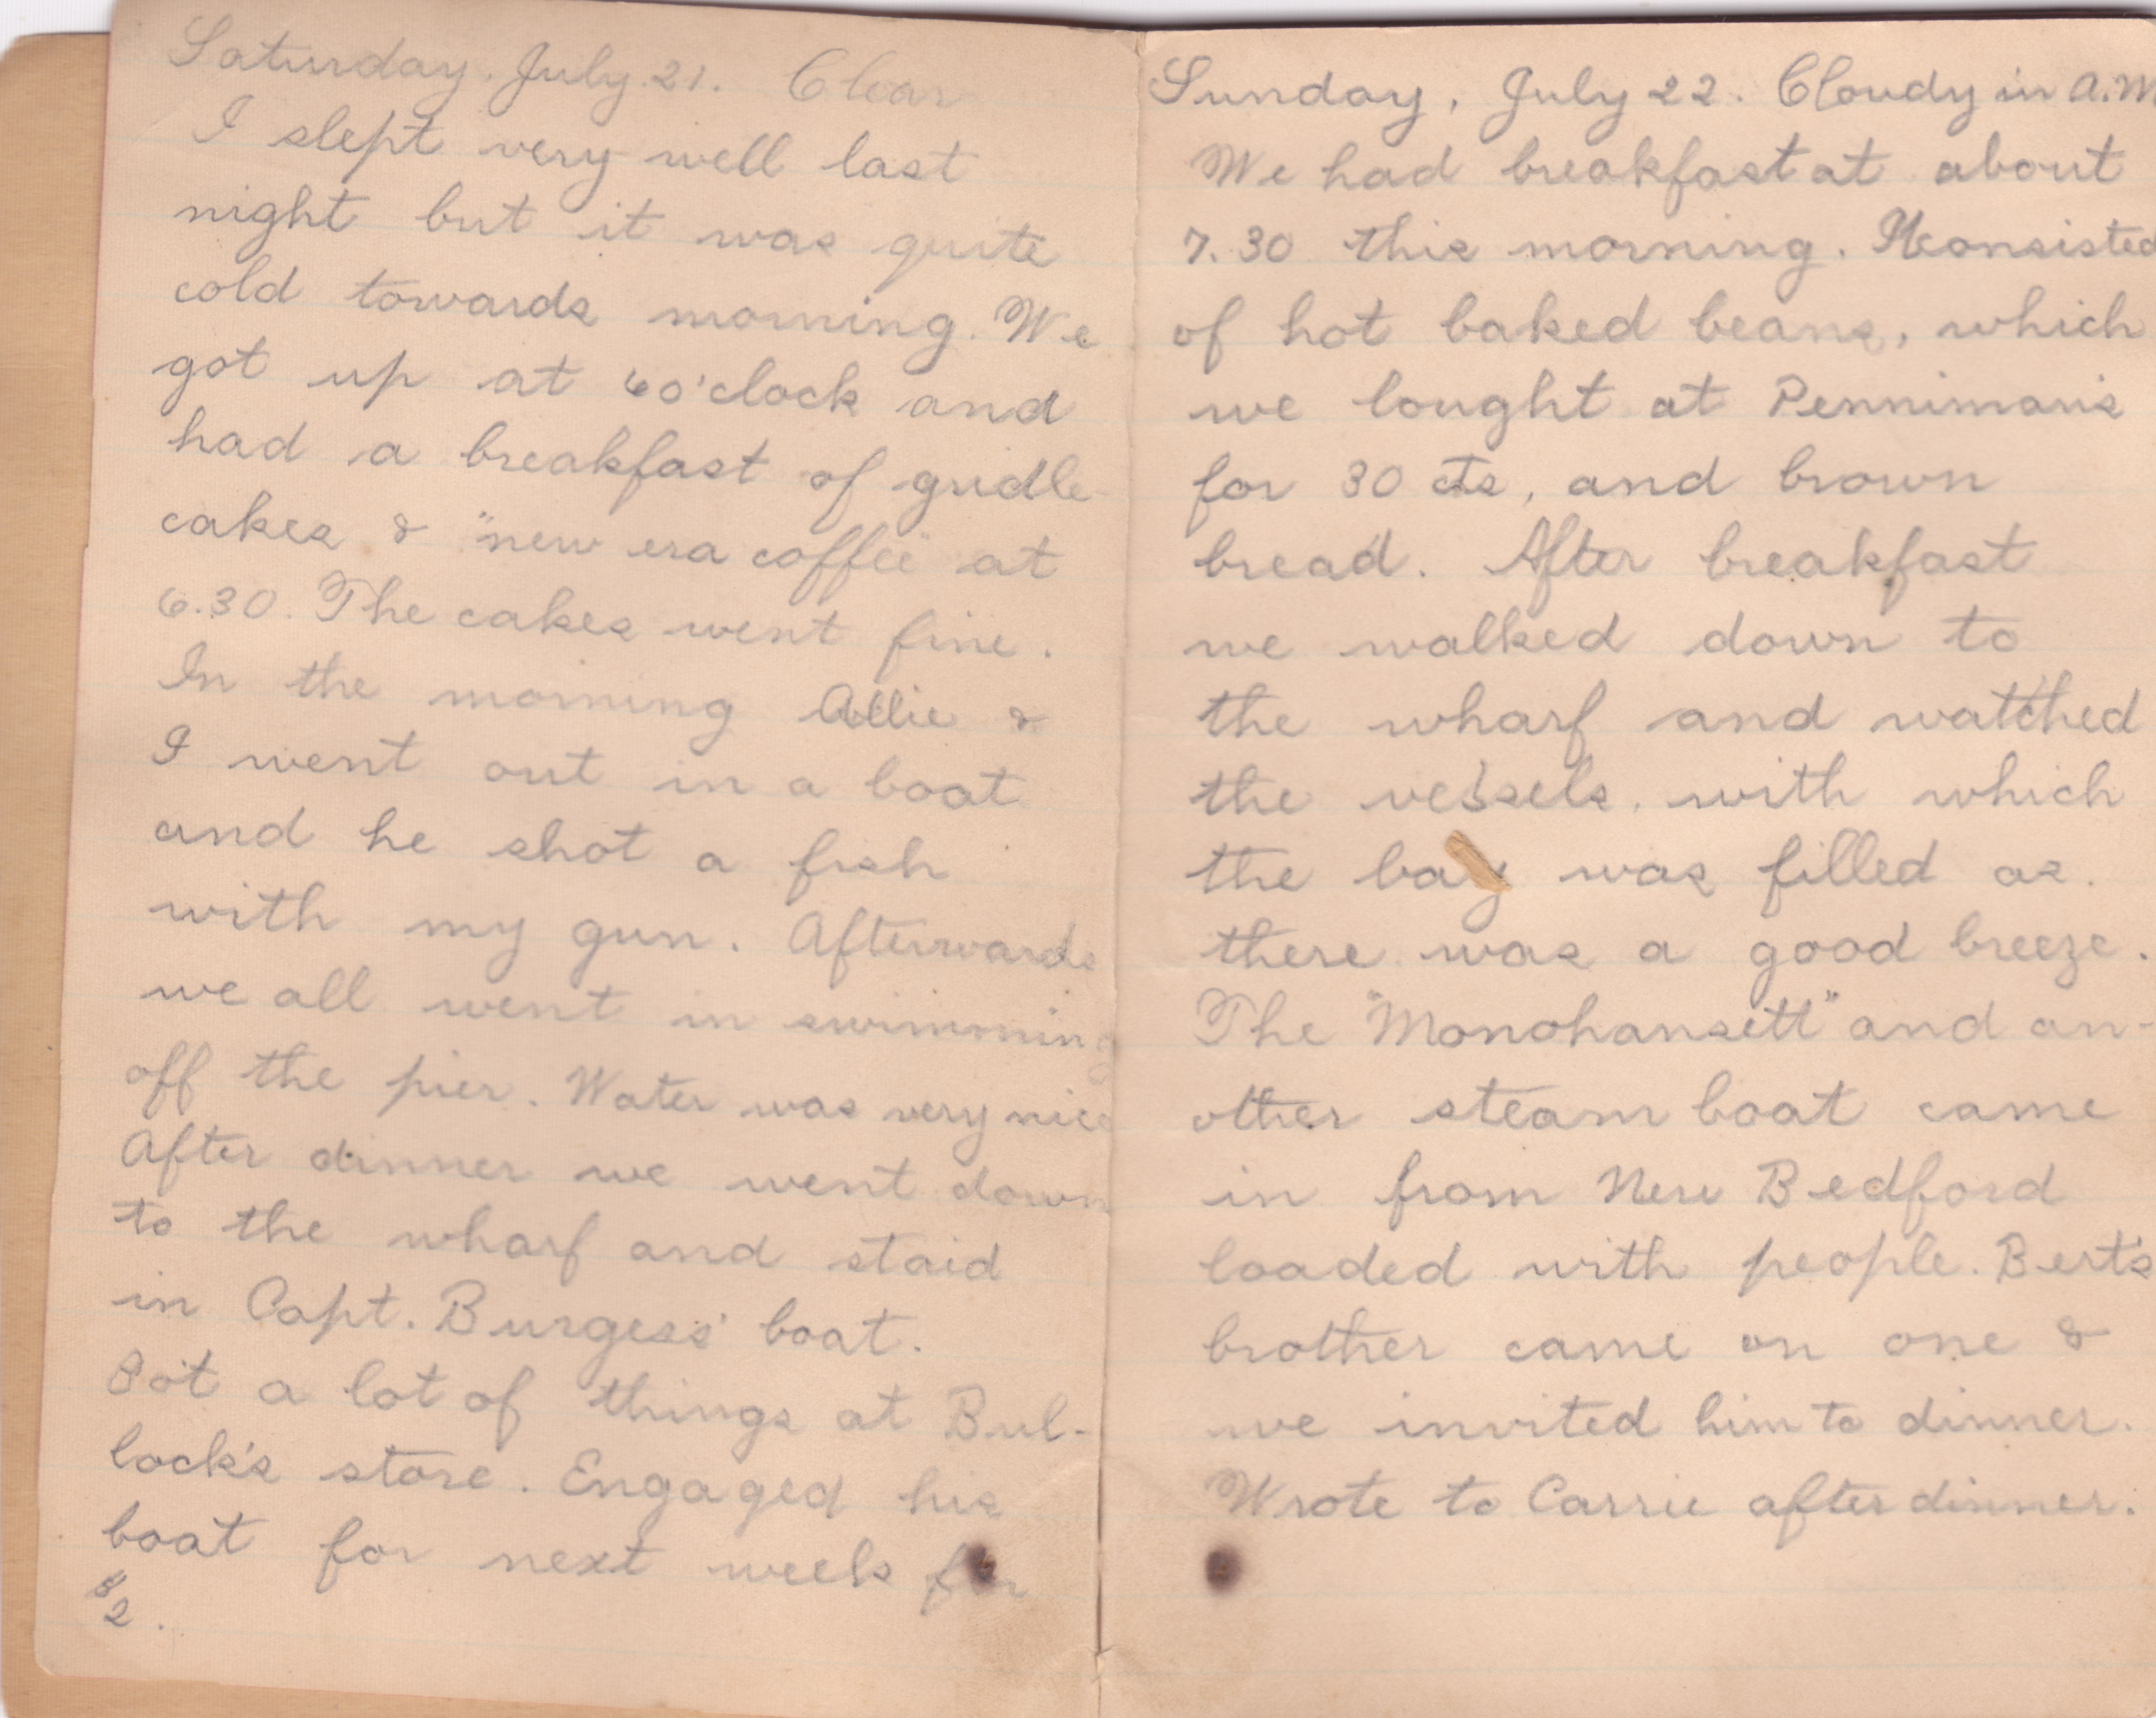 Saturday, July 21. Clear
I slept very well last
night but it was quite
cold towards morning. We
got up at 6 o'clock and
had a breakfast of gridle
cakes & "new era coffee" at
6.30. The cakes went fine.
In the morning Allie &
I went out in a boat
and he shot a fish
with my gun. Afterwards
we all went in swimming
off the pier. Water was very nice
After dinner we went down
to the wharf and staid
in Capt. Burgess' boat.
Got a lot of things at Bul-
lock's store. Engaged his
boat for next week for
$2.
Sunday, July 22. Cloudy in A.M
We had breakfast at about
7.30 this morning. It consisted
of hot baked beans, which
we bought at Penniman's
for 30 cts, and brown
bread. After breakfast
we walked down to
the wharf and watched
the vessels, with which
the bay was filled as
there was a good breeze.
The "Monohansett" and an-
other steam boat came
in from New Bedford
loaded with people. Bert's
brother came on one &
we invited him to dinner.
Wrote to Carrie after dinner.